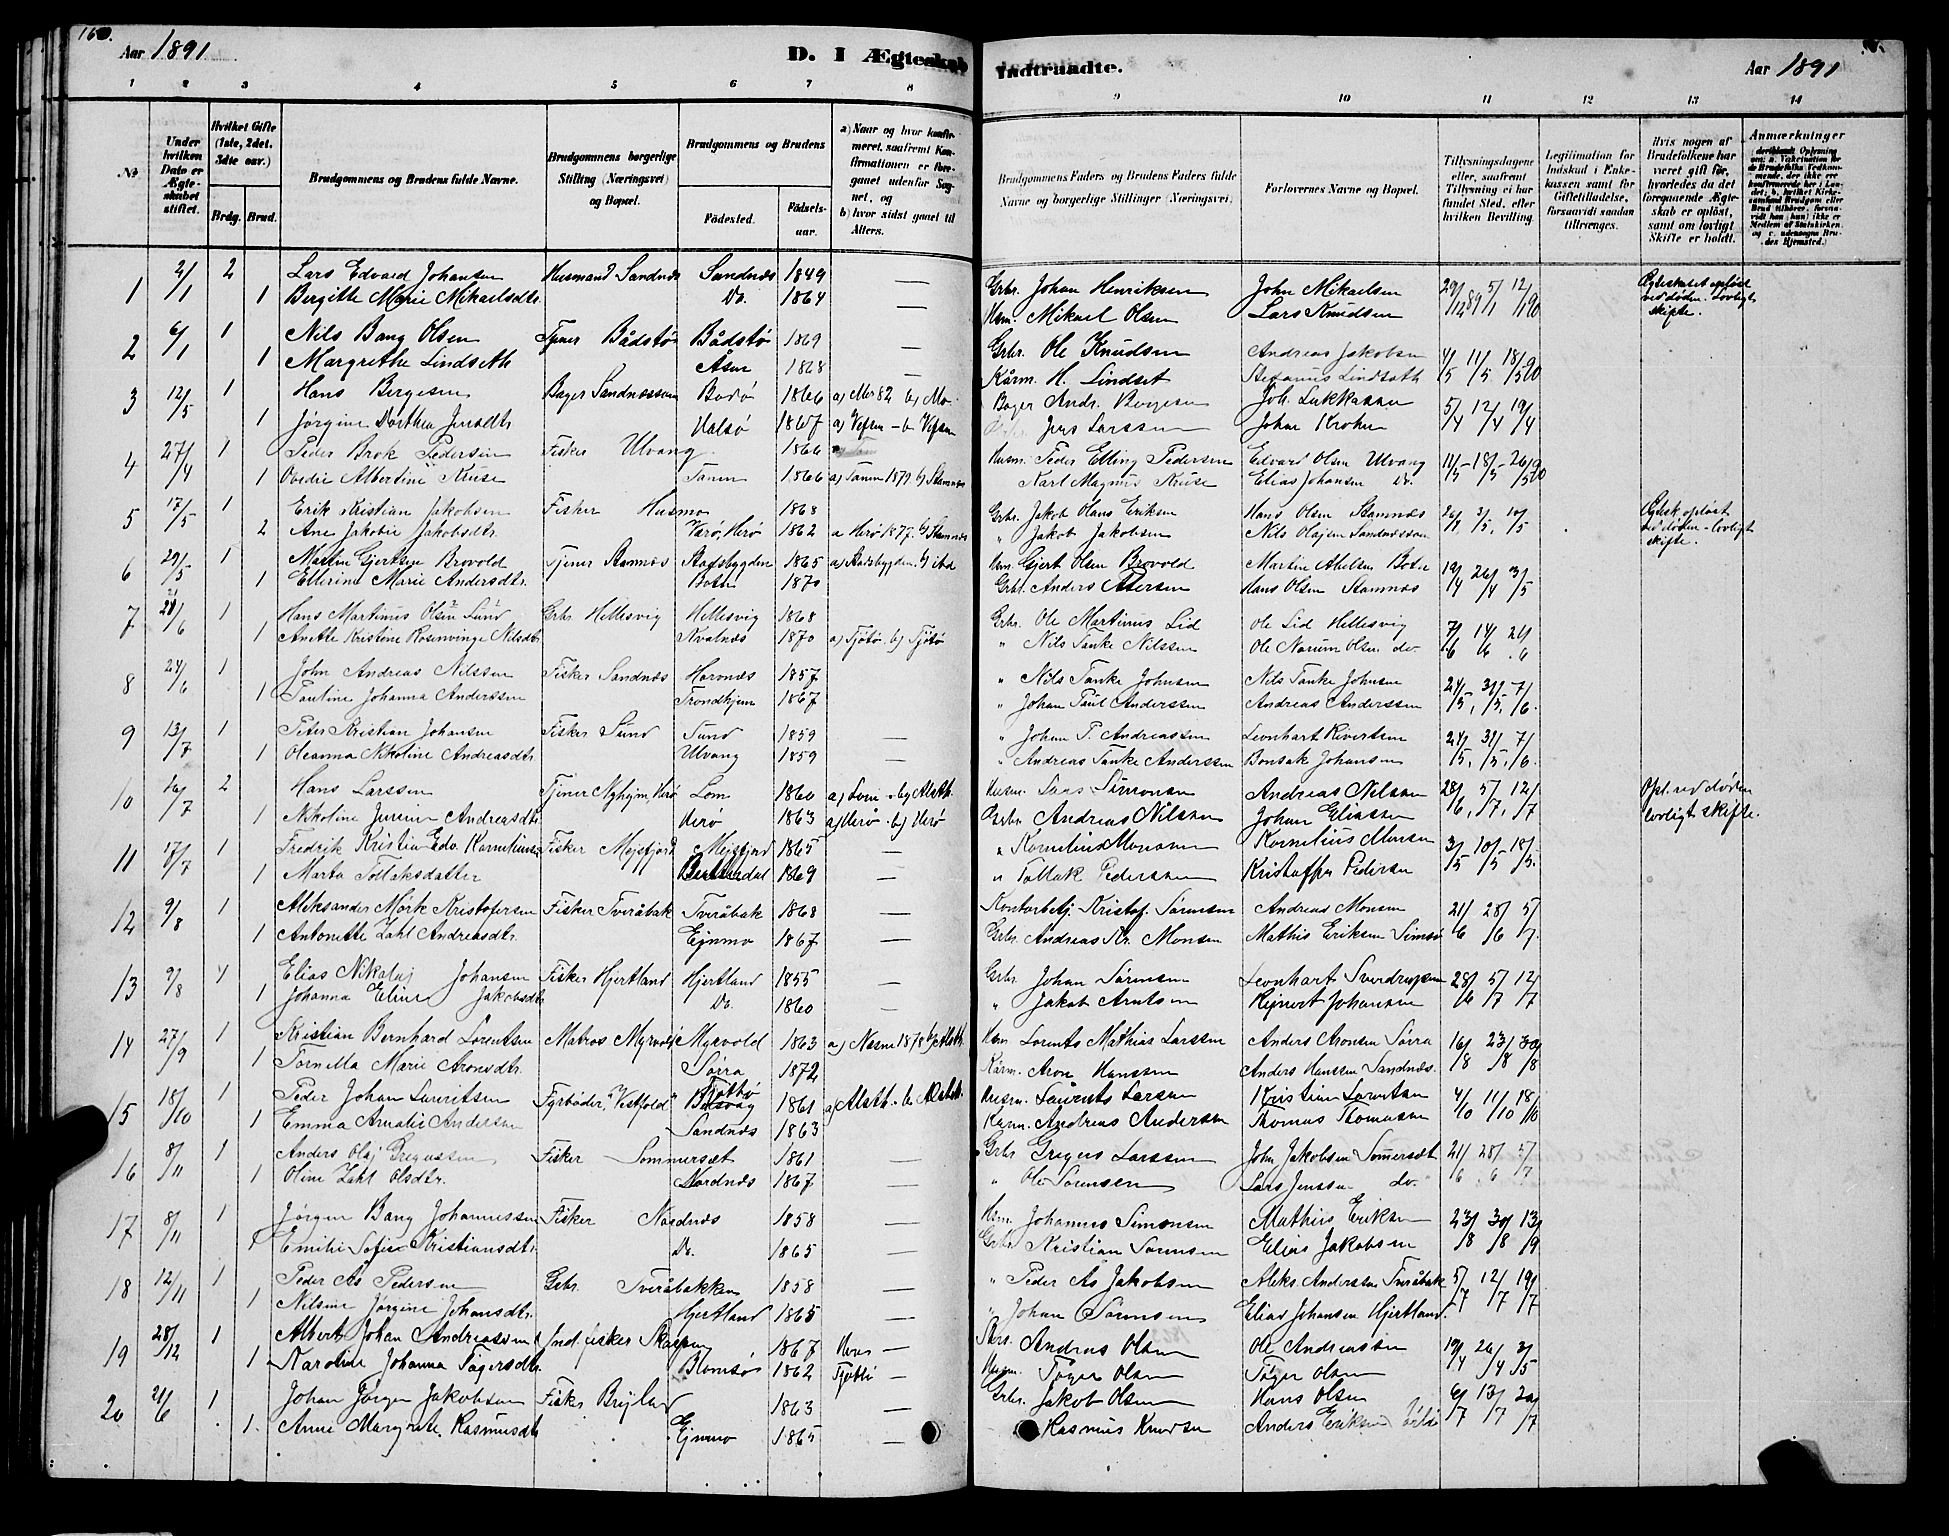 160.
Aar 1891
D. I Ægteskab Indtraadte.
Aar 1891
1 2 3 4 5 6 7 8 9 10 11 12 13 14
No
Under hvilken Dato er Ægteskabet stiftet.
Hvilket Gifte (1ste, 2det, 3die osv.)
Brdg. Brud.
Brudgommens og Brudens fulde Navne.
Brudgommens borgerlige Stilling (Næringsvei) og Bopæl.
Brudgommens og Brudens
Fødested. Fødselsaar.
a) Naar og hvor konfirmeret, saafremt Konfirmationen er foregaaet udenfor Sognet, og
b) hvor sidst gaaet til Alters.
Brudgommens Faders og Brudens Faders fulde Navne og borgerlige Stillinger (Næringsvei).
Forlovernes Navne og Bopæl.
Tillysningsdagene eller, saafremt Tillysning ei har fundet Sted, efter hvilken Bevilling.
Legitimation for Indskud i Enkekassen samt for Giftetilladelse, forsaavidt saadan tiltrænges.
Hvis nogen af Brudefolkene har været gift før, hvorledes da det foregaaende Ægteskab er opløst, samt om lovligt Skifte er holdt.
Anmærkninger
1 2/1 2 Lars Edvard Johansen Husmand Sandnæs Sandnæs 1849 — Grbr. Johan Henriksen John Mikaelsen 29/12 89 5/1 12/1 90 Ægteskabet opløst ved døden. Lovligt skifte.
1 Bergitte Marie Mikaelsdtr. Do. 1864 Hsm. Mikael Olsen Lars Knudsen
2 6/1 1 Nils Bang Olsen Tjener Bådstø Bådstø 1869 — Grbr. Ole Knudsen Andreas Jakobsen 4/5 11/5 18/5 90
1 Margrethe Lindseth Åsen 1868 Kårm. H. Lindset Stefanus Lindseth
3 12/5 1 Hans Bergesen Bager Sandnæssøen Bodø 1866 a) Mo 82 b) Mo Bager Andr. Bergesen Joh. Lukkassen 5/4 12/4 19/4
1 Jørgine Dorthea Jensdtr. Halsø 1867 a) Vefsn - b) Vefsn Jens Larssen Johan Krohn
4 27/4 1 Peder Brok Pedersen Fisker Ulvang 1866 Husm. Peder Elling Pedersen Edvard Olsen Ulvang 11/5 - 18/5 - 26/5 90
1 Ovedie Albertine Kruse Tanen 1866 a) Tanen 1879 b) Stamnæs Karl Magnus Kruse Elias Johansen Do.
5 17/5 1 Erik Kristian Jakobsen Fisker Husmo 1868 Grbr. Jakob Hans Eriksen Hans Olsen Stamnæs 26/4 3/5 10/5 Ægtesk. opløst ved døden - lovligt skifte.
2 Ane Jakobie Jakobsdtr. Varø, Herø 1862 a Herø 1877. b) Stamnæs " Jakob Jakobsen Nils Olajsen Sandnæssøen
6 29/5 1 Martin Gjertsen Brovold Tjener Stamnæs Stadsbygden 1865 a) Stadsbygden b) ibd Hsm Gjert Olsen Brovold Martin Abelsen Botn 19/4 26/4 3/5
1 Ellerine Marie Andersdtr. Botn 1870 Grbr. Anders Petersen Hans Olsen Stamnæs
7 21/6 1 Hans Martinus Olsen Lund Grbr. Hellesvig Hellesvig 1868 Grbr. Ole Martinus Lid Ole Lid Hellesvig 7/6 14/6 21/6
1 Anette Kristine Rosenvinge Nilsdtr. Kvalnæs 1870 a) Tjøtø b) Tjøtø " Nils Tanke Nilssen Ole Norum Olsen do
8 24/6 1 John Andreas Nilssen Fisker Sandnæs Hornnæs 1857 " Nils Tanke Johnsen Nils Tanke Johnsen 24/5, 31/5, 7/6.
1 Pautine Johanna Anderssen Trondhjem 1867 " Johan Paul Anderssen Andreas Anderssen
9 13/7 1 Peter Kristian Johansen Fisker Sund Sund 1859 — " Johan P. Andreassen Leonhart Rivertsen 24/5, 31/5, 7/6.
1 Oleanna Nikoline Andreasdtr. Ulvang 1859 — " Andreas Tanke Anderssen Bonsak Johansen
10 16/7 2 Hans Larssen Tjener Nyhejm, Herø Lom 1860 a) Lom - b) Alsth. Husm. Lars Simonsen Andreas Nilssen 28/6, 5/7, 12/7 Opl. ved døden lovligt skifte.
1 Nikoline Jensine Andreasdtr. Herø 1863 a) Herø - b) Herø Grbr. Andreas Nilssen Johan Eliassen
11 17/7 1 Fredrik Kristian Edv. Korneliussen Fisker Mejsfjord Mejsfjord 1865 — " Kornelius Monsen Kornelius Monsen 3/5 10/5 18/5.
1 Marta Tollaksdatter 1869 " Tollak Pedersen Kristoffer Pedersen
12 9/8 1 Aleksander Mørk Kristofersen Fisker Tveråbak Tveråbak 1868 — Kontorbetj. Kristof. Sørensen Andreas Monsen 21/6 28/6 5/7.
1 Antonette Zahl Andreasdtr. Ejnmo 1867 Grbr. Andreas Kr. Monsen Mathis Eriksen Simsø
13 9/8 1 Elias Nikolaj Johansen Fisker Hjertland Hjertland 1855 — Grbr. Johan Sørensen Leonhart Sverdrupsen 28/6 5/7 12/7
1 Johanna Eline Jakobsdtr Do. 1860 " Jakob Arntsen Rejnert Johansen
14 27/9 1 Kristian Bernhard Lorentsen Matros Myrvold Myrvold 1863 a) Nesne 1878 b) Alsth. Hsm Lorents Mathias Larssen Anders Aronsen Sørra 16/8 23/8 30/8
1 Pornella Marie Aronsdtr. Sørra 1872 Kårm. Aron Hanssen Anders Hanssen Sandnæs.
15 18/10 1 Peder Johan Lauritsen Fyrbøder, "Vestfold" 1861 a) Alsth. b) Alsteh. Husm. Laurents Larsen Kristian Lorentsen 4/10 11/10 18/10
1 Emma Amalie Andersen Sandnæs 1863 Kårm. Andreas Andersen Thomas Thomassen
16 8/11 1 Anders Olaj Gregussen Fisker Sommersæt 1861 — Grbr Gregers Larssen John Jakobsen Somersæt 21/6 28/6 5/7
1 Oline Zahl Olsdtr. Nordnæs 1867 " Ole Sørensen Lars Jenssen do.
17 8/11 1 Jørgen Bang Johannessen Fisker Nordnæs 1858 — Hsm. Johannes Simonsen Mathius Eriksen 23/8 30/8 13/9
1 Emilie Sofie Kristiansdtr Do. 1865 Grbr Kristian Sørensen Elias Jakobsen
18 12/11 1 Peder Ås Pedersen Grbr. Tveråbakken 1858 " Peder Ås Jakobsen Aleks. Anderssen Tveråbak 5/7 12/7 19/7
1 Nilsine Jørgine Johansdtr. Hjertland 1865 " Johan Sørensen Elias Johansen Hjertland.
19 28/12 1 Albert Johan Andreassen Ind. fisker Skagen 1867 — Andreas Olsen Ole Andreassen 19/4 26/4 3/5
1 Karoline Johanna Tøgersdtr. Blomsø 1862 Tjøttø — Husm. Tøger Olsen Tøger Olsen
20 21/6 1 Johan Jørgen Jakobsen Fisker 1863 — Grbr. Jakob Olsen Hans Olsen 6/7 13/7 20/7
1. Anne Margrete Rasmusdtr Ejnmo 1865 — Rasmus Knudsen Anders Eriksen